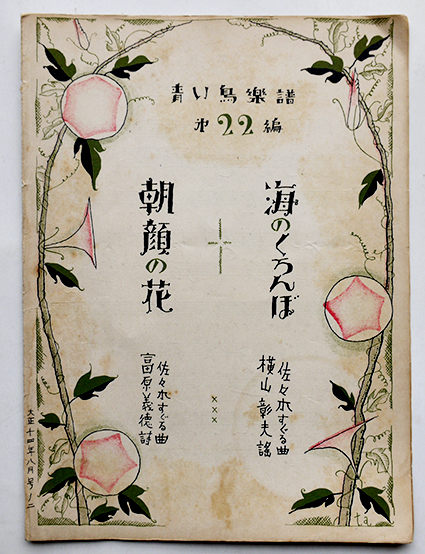 青い鳥樂譜
第22編
海のくろんぼ
佐々木すぐる曲
横山彰夫謠
朝顔の花
佐々木すぐる曲
富原義徳詩
大正十四年八月号ノ二
ta.